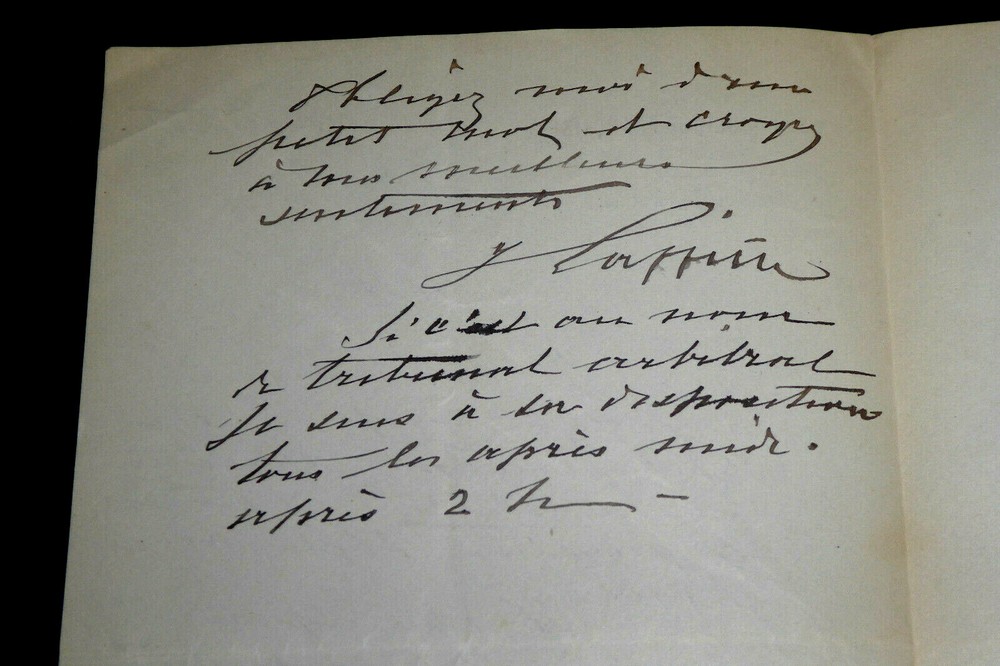 Obligez moi d'un
petit mot et croyez
à mes meilleurs
sentiments
Si c'est au nom
de tribunal arbitral
Je suis à sa disposition
tous les après midi.
après 2 h —